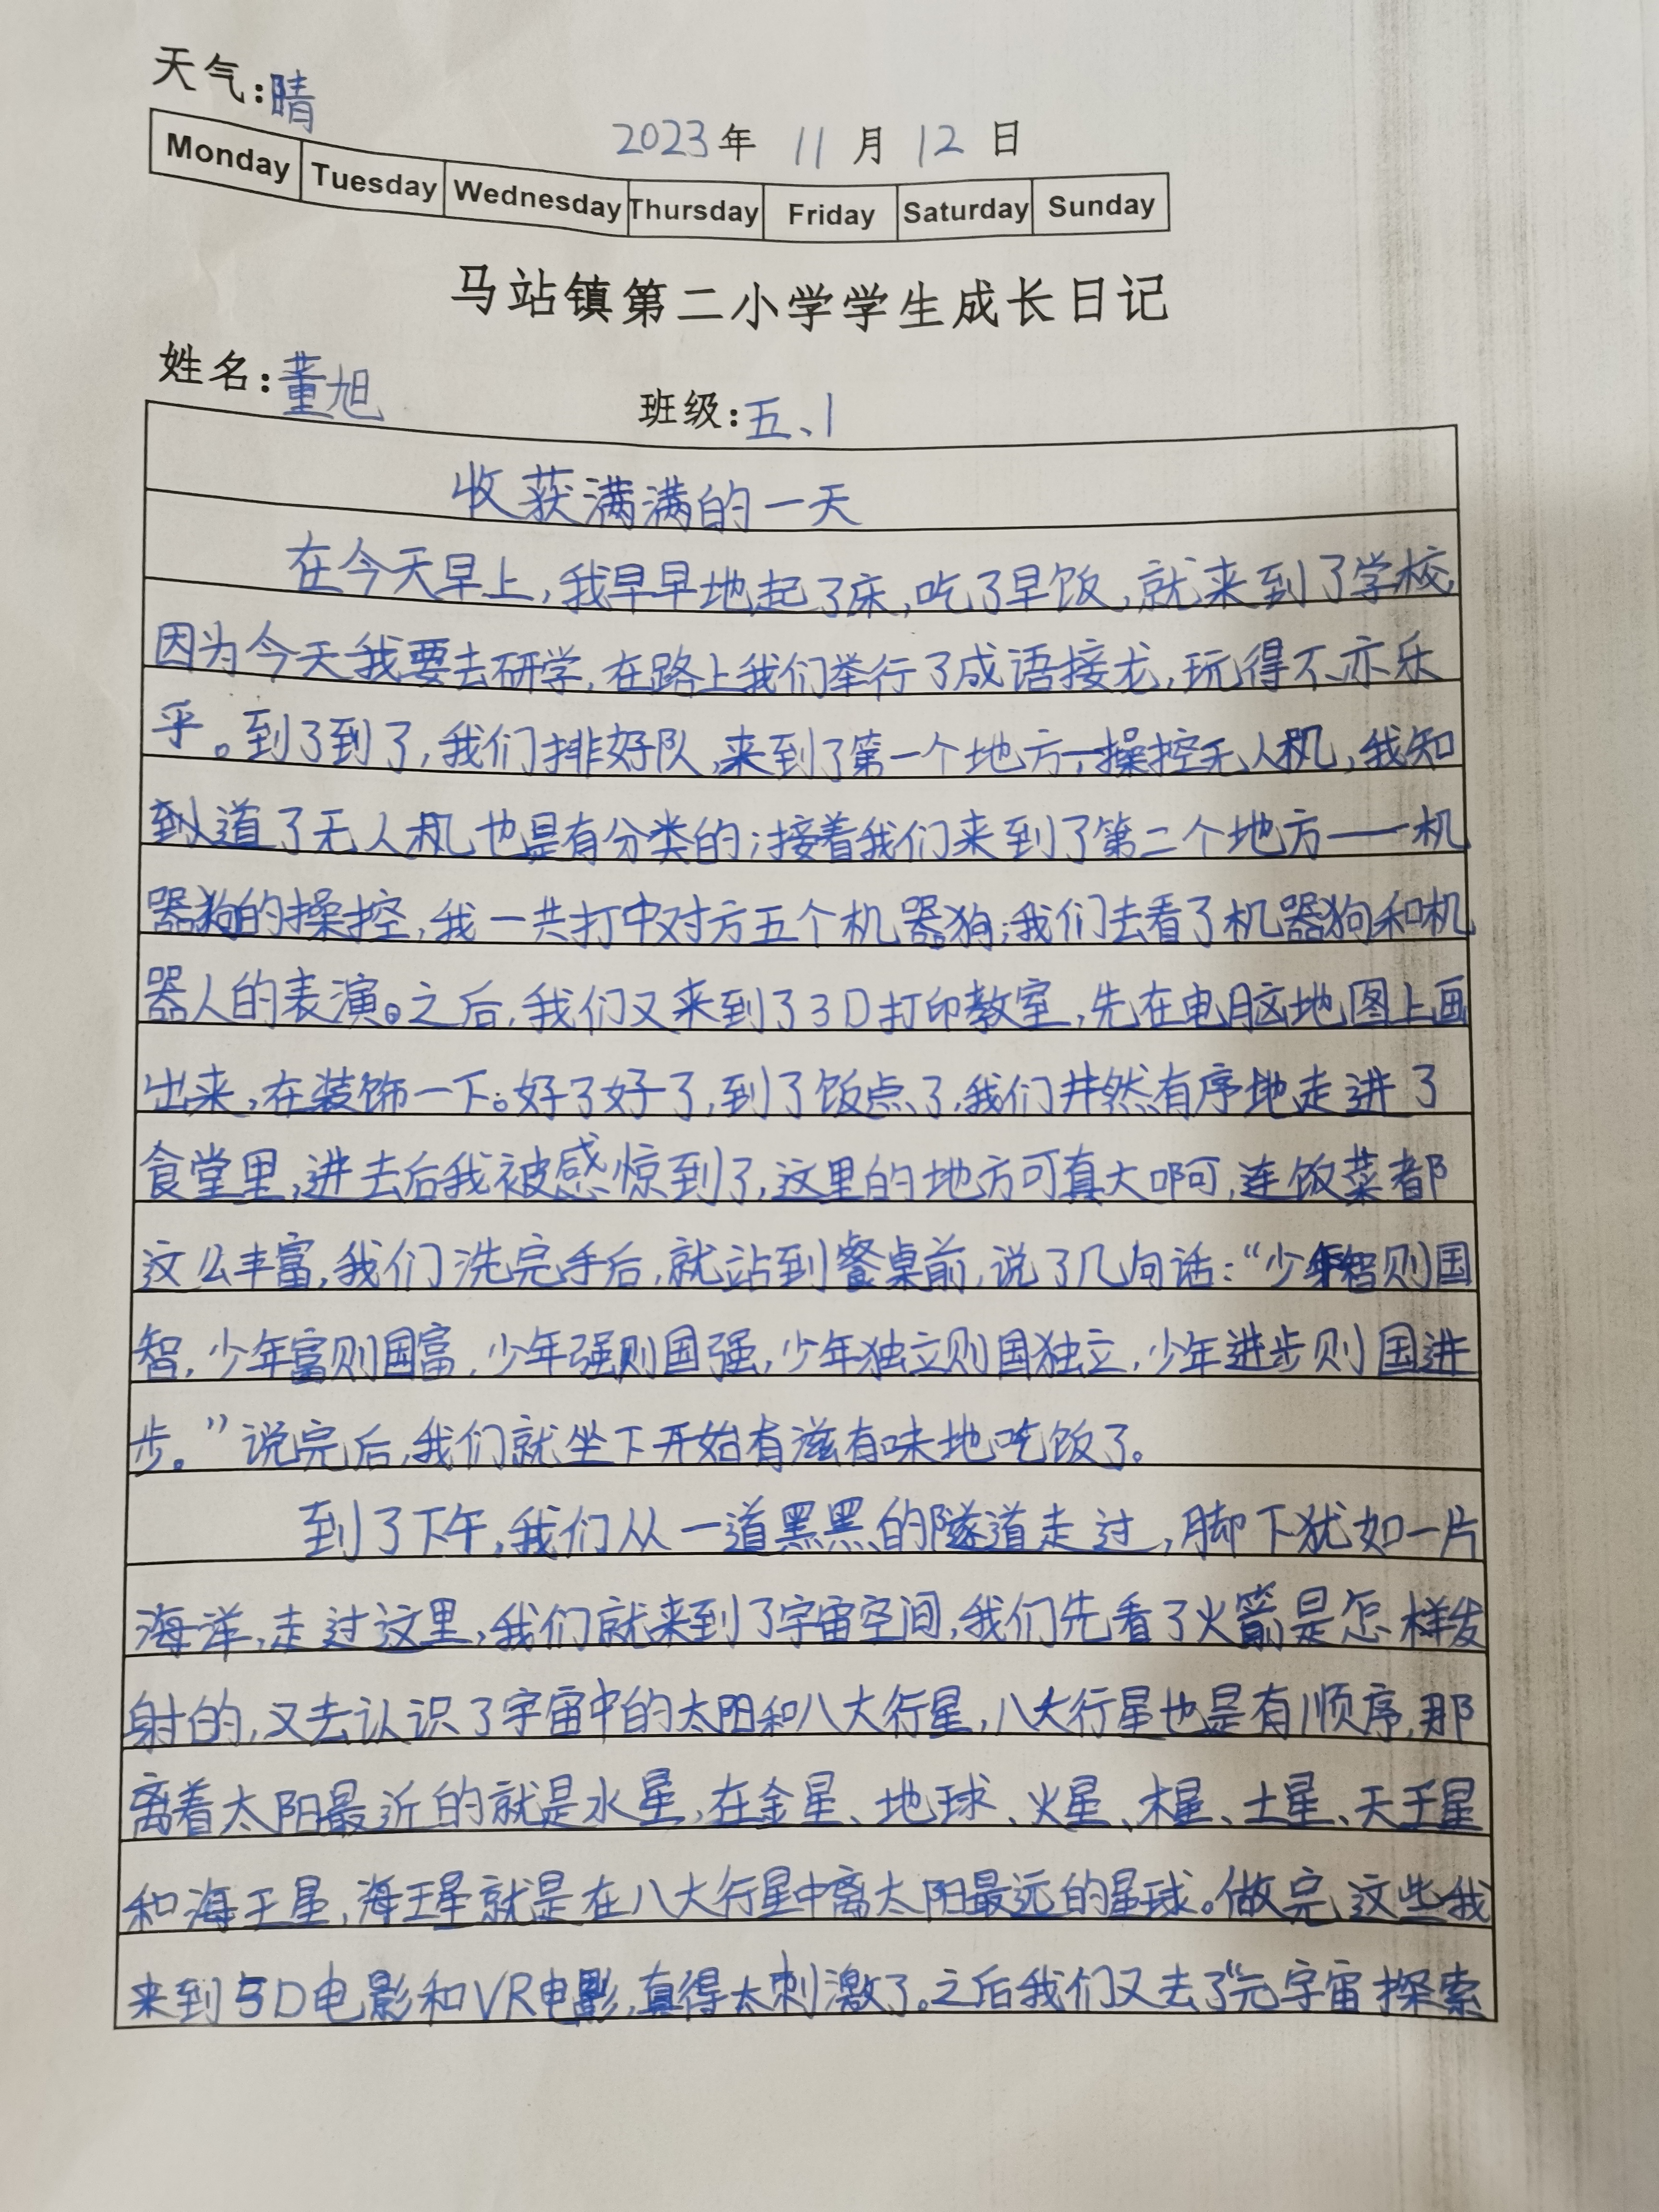 天气:晴
2023年 11月 12日
Monday Tuesday Wednesday Thursday Friday Saturday Sunday
马站镇第二小学学生成长日记
姓名:董旭 班级:五、1
收获满满的一天
在今天早上,我早早地起了床,吃了早饭,就来到了学校
因为今天我要去研学,在路上我们举行了成语接龙,玩得不亦乐
乎。到了到了,我们排好队,来到了第一个地方一操控无人机,我知
到道了无人机也是有分类的;接着我们来到了第二个地方——机
器狗的操控,我一共打中对方五个机器狗;我们去看了机器狗和机
器人的表演。之后,我们又来到了3D打印教室,先在电脑地图上画
出来,在装饰一下。好了好了,到了饭点了,我们井然有序地走进了
食堂里,进去后我被感惊到了,这里的地方可真大啊,连饭菜都
这么丰富,我们洗完手后,就站到餐桌前,说了几句话:“少年智则国
智,少年富则国富,少年强则国强,少年独立则国独立,少年进步则国进
步。”说完后,我们就坐下开始有滋有味地吃饭了。
到了下午,我们从一道黑黑的隧道走过,脚下犹如一片
海洋,走过这里,我们就来到了宇宙空间,我们先看了火箭是怎样发
射的,又去认识了宇宙中的太阳和八大行星,八大行星也是有顺序,那
离着太阳最近的就是水星,在金星、地球、火星、木星、土星、天王星
和海王星,海王星就是在八大行星中离太阳最远的星球。做完这些我
来到5D电影和VR电影,真得太刺激了。之后我们又去了“元宇宙探索